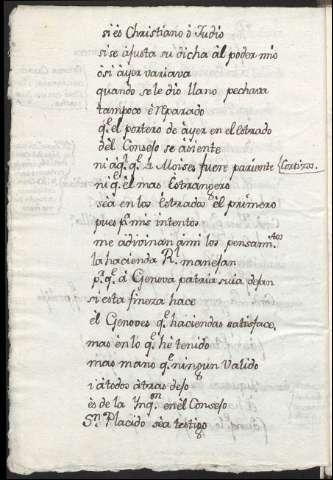 si es Christiano ò Judio
si se ajusta su dicha àl poder mio
òsi àyer variava
quando se le dio llano pechava
tampoco è Reparado
q.e el portero de àyer en el letrado
del Consejo se asiente
ni aq.l q.e à Moises fuere pariente Cortizos.
ni q.e el mas Estrangero
sea en los Estrados èl primero
pues p.a mis intentos
me adivinan ami los pensam.tos
la hacienda R.l manejan
p.r q.e d Genova patria suia dejan
si esta fineza hace
èl Genoves q.e haciendas satisface,
mas èn lo q.e hè tenido
mas mano q.e ningun Valido
i à todos àtras dejo
ès de la Ynq.on en èl Consejo
S.n Placido sèa testigo